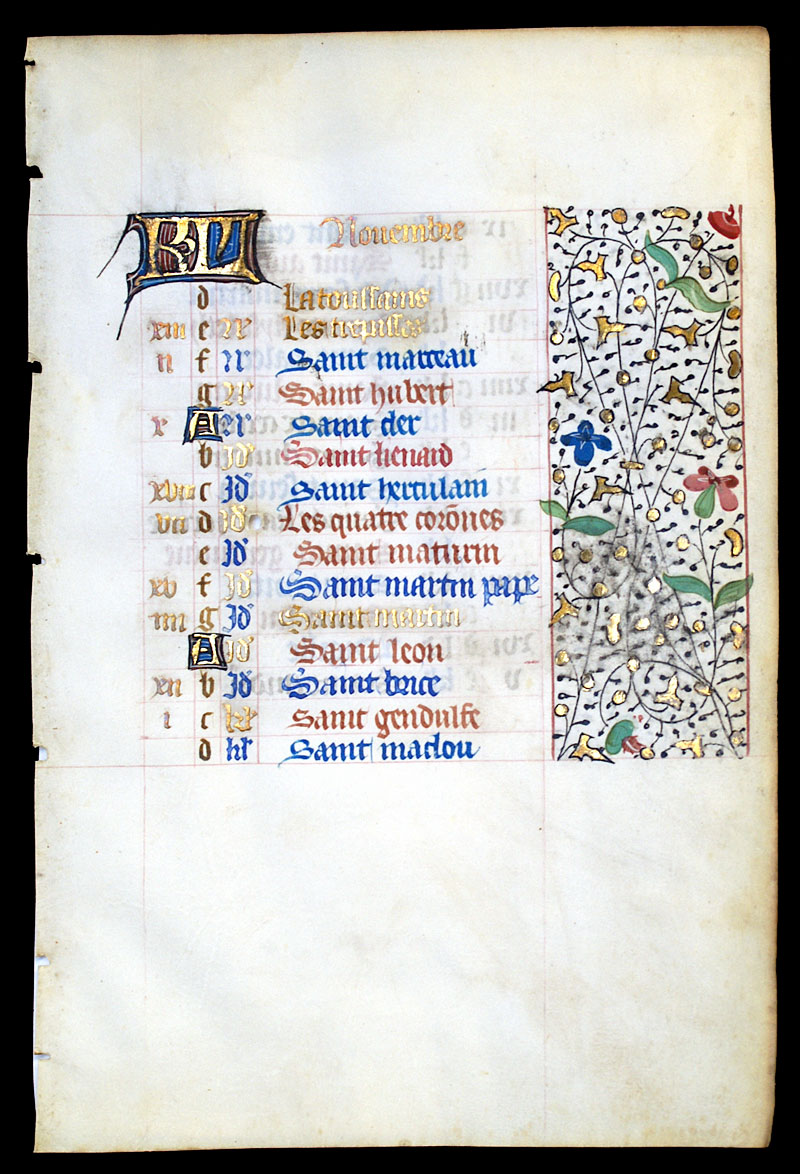 KL Nouembre
d La toussains
xiii e N Les trepasses
ii f N Saint marceau
g N Saint hubert
x A N Saint cler
b Id Saint lienard
xviii c Id Saint herculain
vii d Id Les quatre corōnes
e Id Saint maturin
xv f Id Saint martin pape
iiii g Id Saint martin
A Id Saint leon
xii b Id Saint brice
i c kl Saint gendulfe
d kl Saint maclou